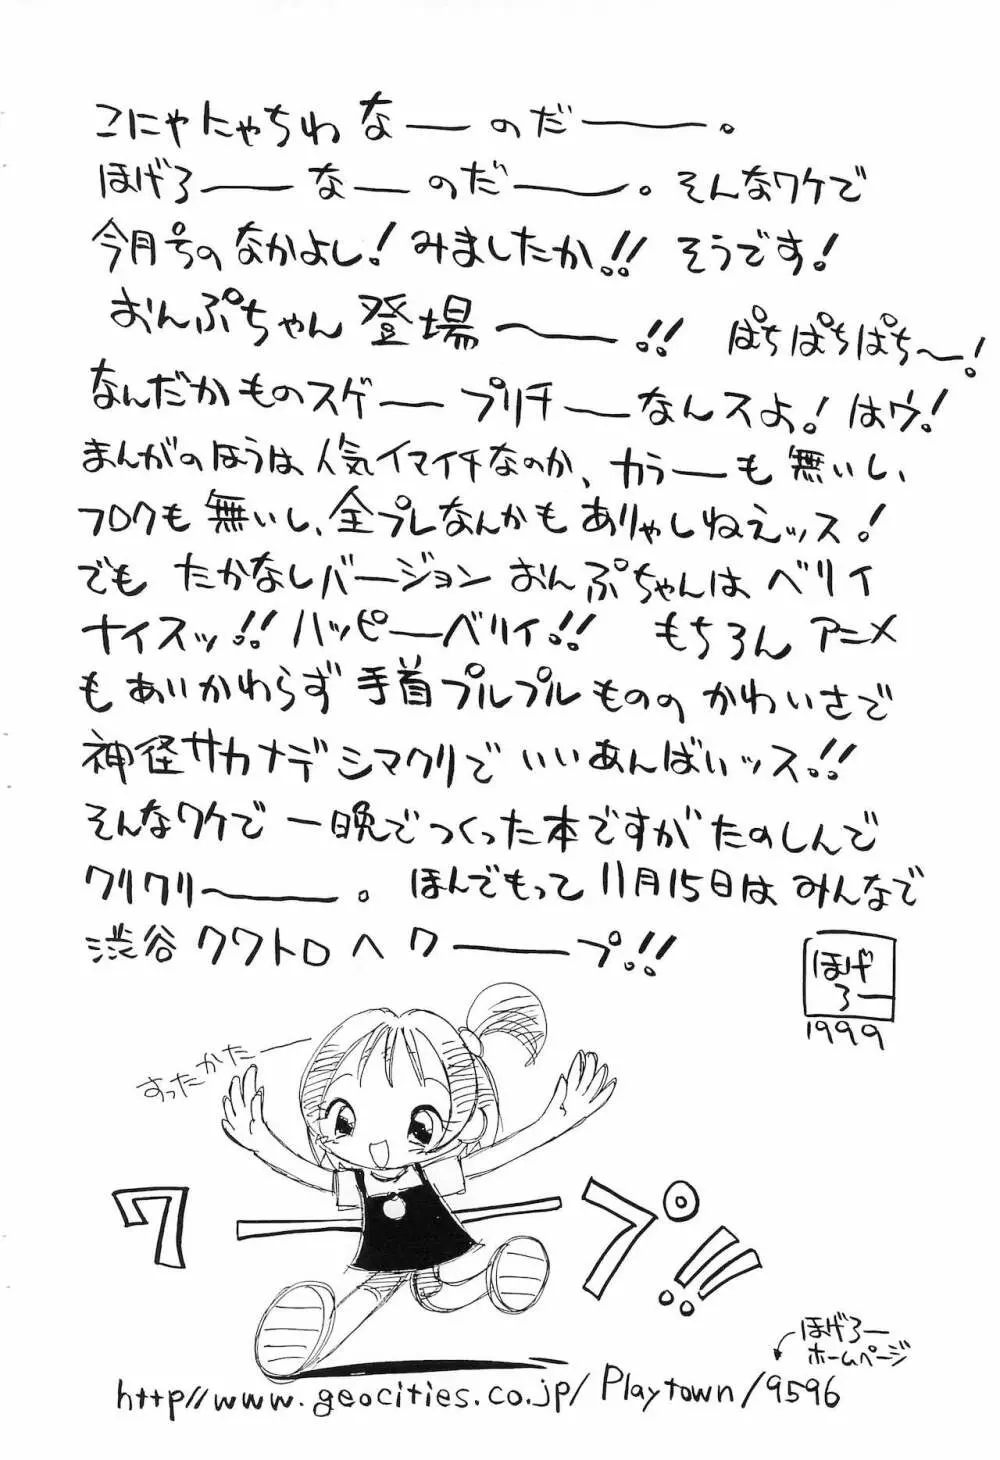 こにゃにゃちわ なーのだー。
ほげろー なーのだー。そんなワケで
今月号の なかよし! みましたか!! そうです!
おんぷちゃん 登場ー!! ぱちぱちぱち〜!
なんだか ものスゲー プリチーなんスよ! はウ!
まんがのほうは 人気イマイチなのか、カラーも 無いし
フロクも 無いし、全プレなんかも ありゃしねえッス!
でも たかなしバージョン おんぷちゃんは ベリイ
ナイスッ!! ハッピーベリイ!! もちろん アニメ
も あいかわらず 手首プルプルものの かわいさで
神径サカナデ シマクリで いいあんばいッス!!
そんなワケで 一晩でつくった本ですが たのしんで
クリクリー。 ほんでもって 11月15日は みんなで
渋谷 クワトロ へ ワープ!!
ほげ
ろー
1999
すったかたー
ワープ!!!
ほげろー
ホームページ
http//www.geocities.co.jp/Playtown/9596